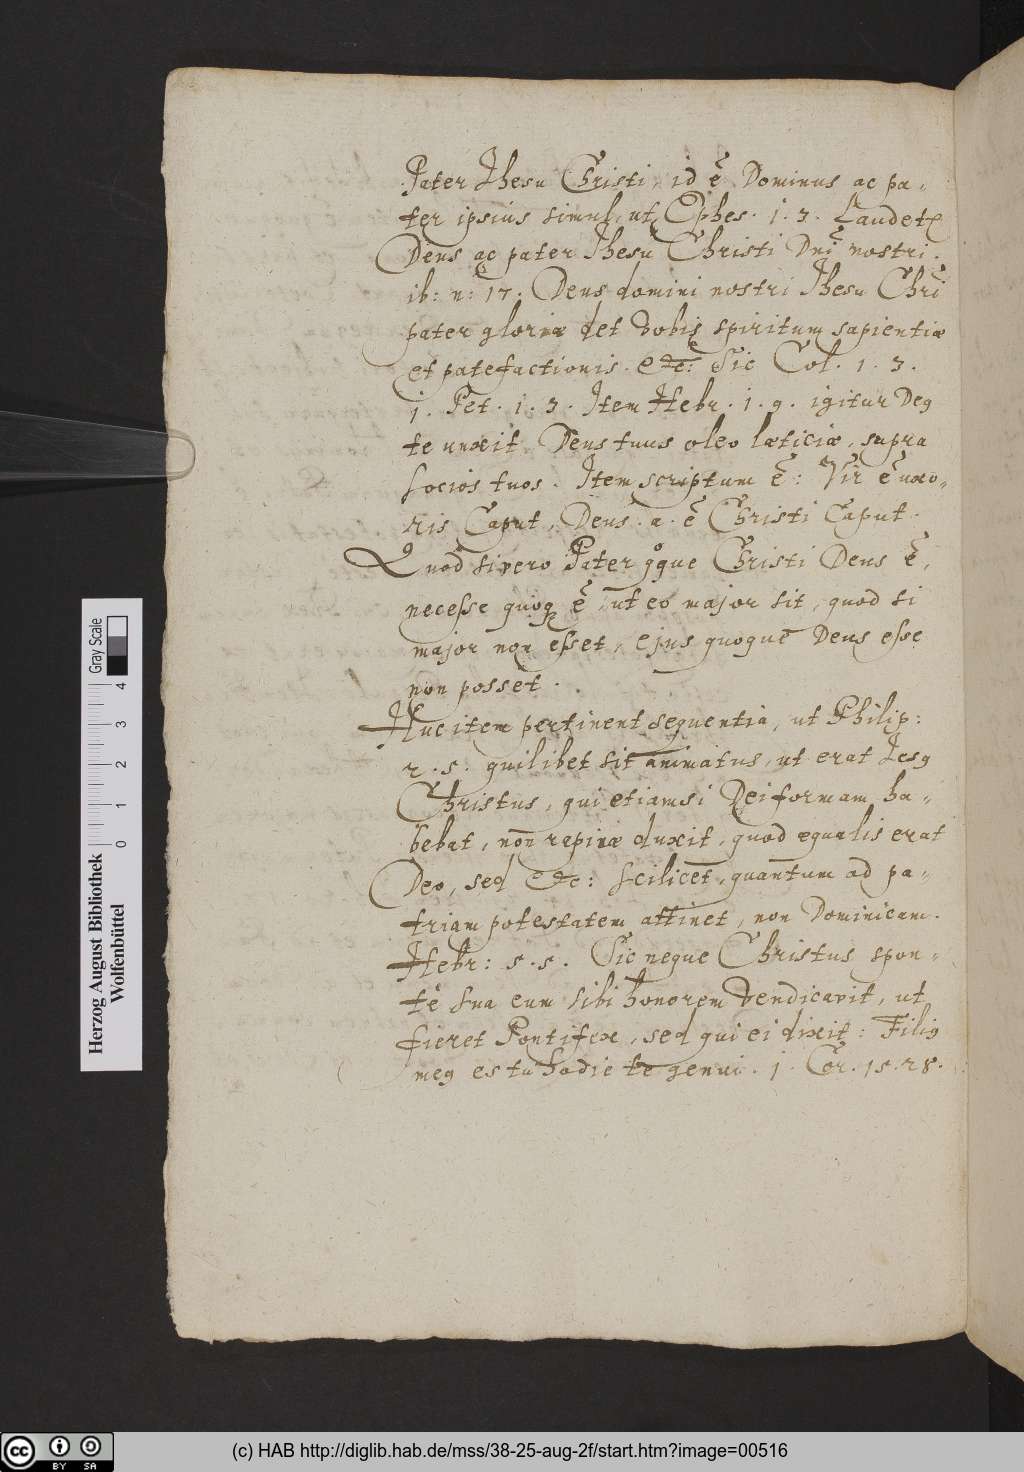 Pater Jhesu Christi, id ē Dominus ac pa-
ter ipsius simul, ut Ephes. 1. 3. Laudetr
Deus ac pater Jhesu Christi Dn̄i nostri.
ib: n: 17. Deus domini nostri Jhesu Chr̄i
pater gloriæ det vobis spiritum sapientiæ
et patefactionis. etc: Sic Col. 1. 3.
1. Pet. 1. 3. Item Hebr. 1. 9. igitur Deus
te unxit Deus tuus oleo læticiæ, supra
socios tuos. Item scriptum ē: Vir ē uxo-
ris Caput, Deus. a. ē Christi Caput.
Quod si vero Pater qque Christi Deus ē,
necesse quoq ē, ut eo major sit, quod si
major non esset, ejus quoque Deus esse
non posset.
Huc item pertinent sequentia, ut Philip:
2. 5. quilibet sit animatus, ut erat Jesus
Christus, qui etiamsi Dei formam ha-
bebat, non rapinæ duxit, quod æqualis erat
Deo, sed etc: scilicet, quantum ad pa-
triam potestatem attinet, non Dominicam.
Hebr: 5. 5. Sic neque Christus spon-
te sua eum sibi honorem vendicavit, ut
fieret Pontifex, sed qui ei dixit: Filius
meus es tu hodie te genui. 1. Cor. 15. 28.
Gray Scale
0 1 2 3 4
Herzog August Bibliothek
Wolfenbüttel
cc BY SA
(c) HAB http://diglib.hab.de/mss/38-25-aug-2f/start.htm?image=00516